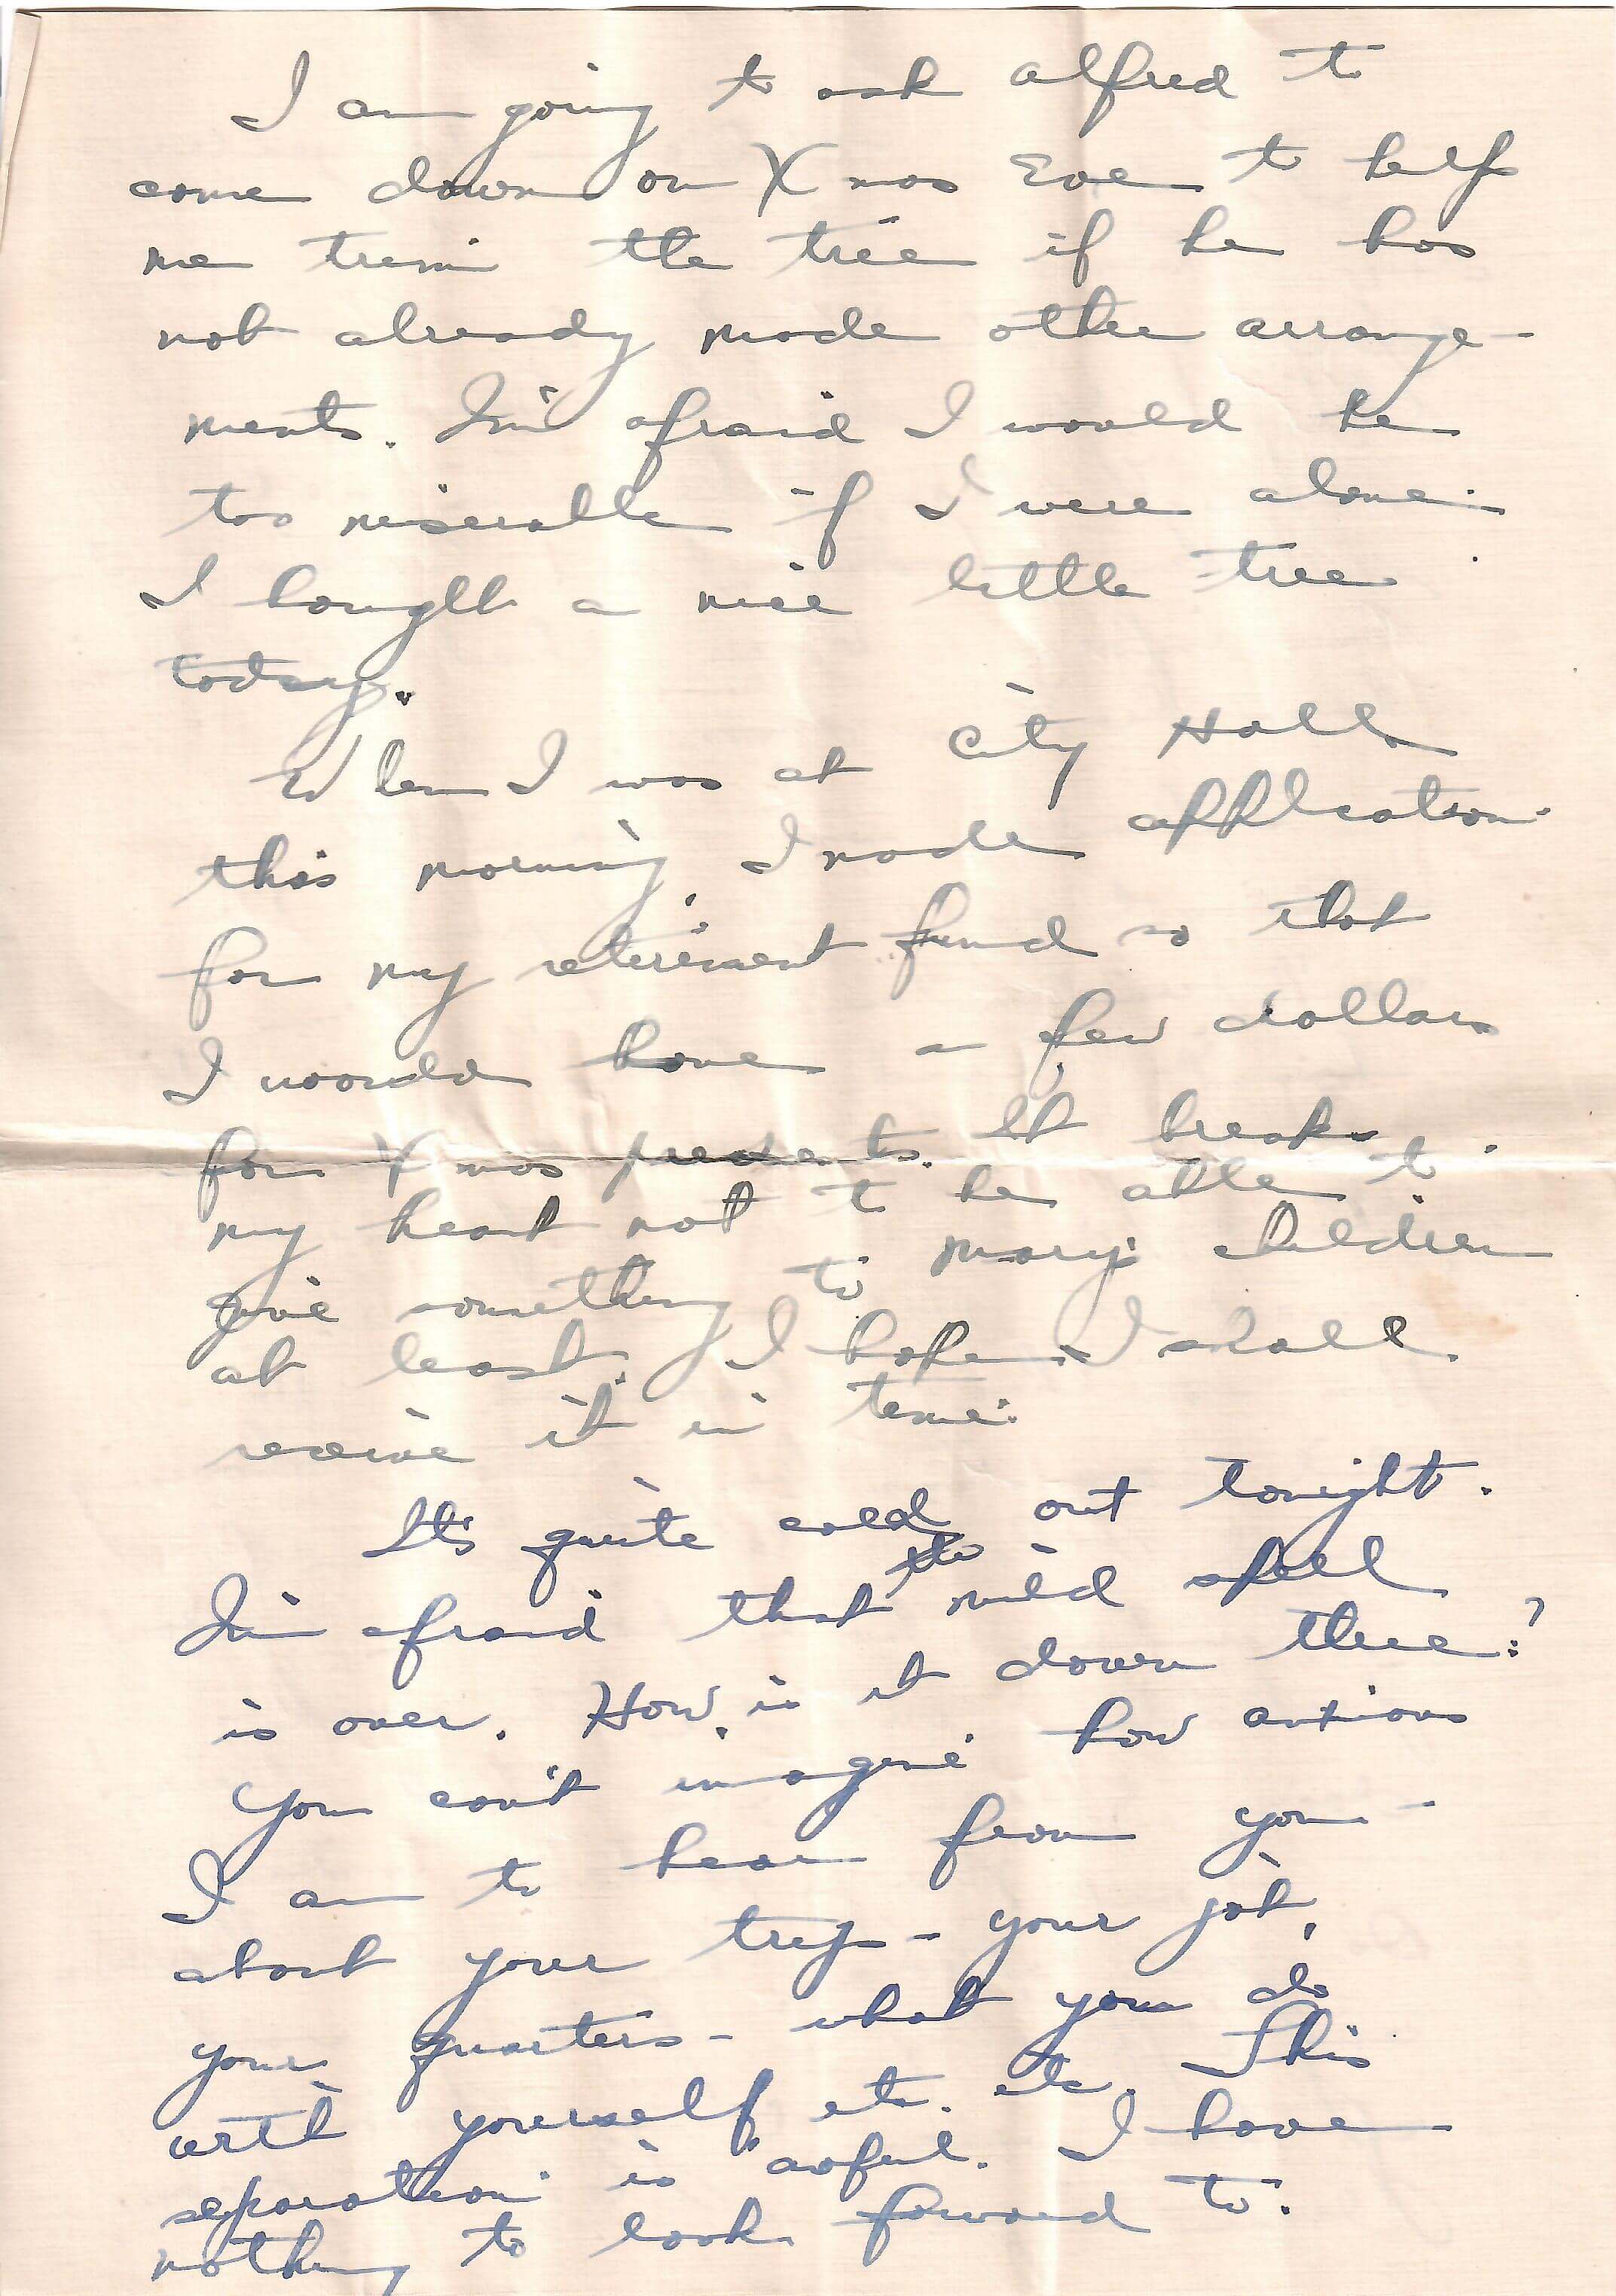 I am going to ask Alfred to
come down on Xmas Eve to help
me trim the tree if he has
not already made other arrange-
ments. I'm afraid I would be
too miserable if I were alone.
I bought a nice little tree
today.
When I was at City Hall
this morning, I made application
for my retirement fund so that
I would have a few dollars
for Xmas presents. It breaks
my heart not to be able to
give something to Mary's children
at least. I hope I shall
receive it in time.
It's quite cold out tonight.
I'm afraid that the mild spell
is over. How is it down there?
You can't imagine how anxious
I am to hear from you -
about your trip - your job,
your quarters - what you do
with yourself etc. etc. This
separation is awful. I have
nothing to look forward to.